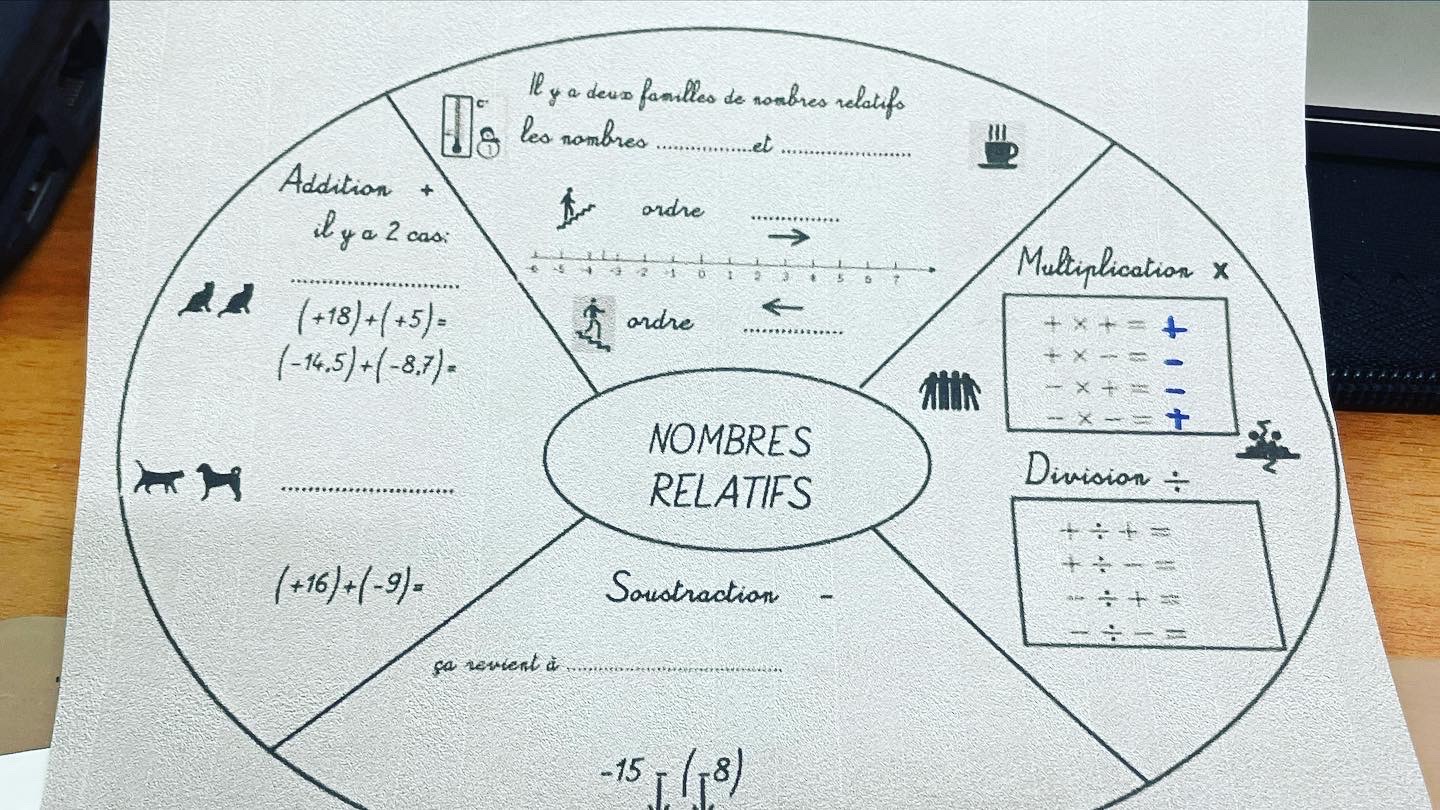 Il y a deux familles de nombres relatifs
les nombres ................et ......................
ordre ...............
-6 -5 -4 -3 -2 -1 0 1 2 3 4 5 6 7
ordre ................
Addition +
il y a 2 cas:
.............................
(+18)+(+5)=
(-14,5)+(-8,7)=
.............................
(+16)+(-9)=
NOMBRES
RELATIFS
Multiplication x
+ × + = +
+ × - = -
- × + = -
- × - = +
Division ÷
+ ÷ + =
+ ÷ - =
- ÷ + =
- ÷ - =
Soustraction -
ça revient à ....................................
-15 - (-8)